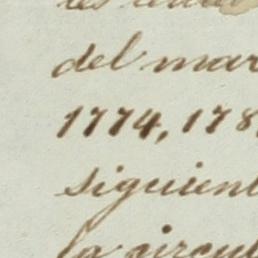 del mar
1774, 178
siguient
la circul